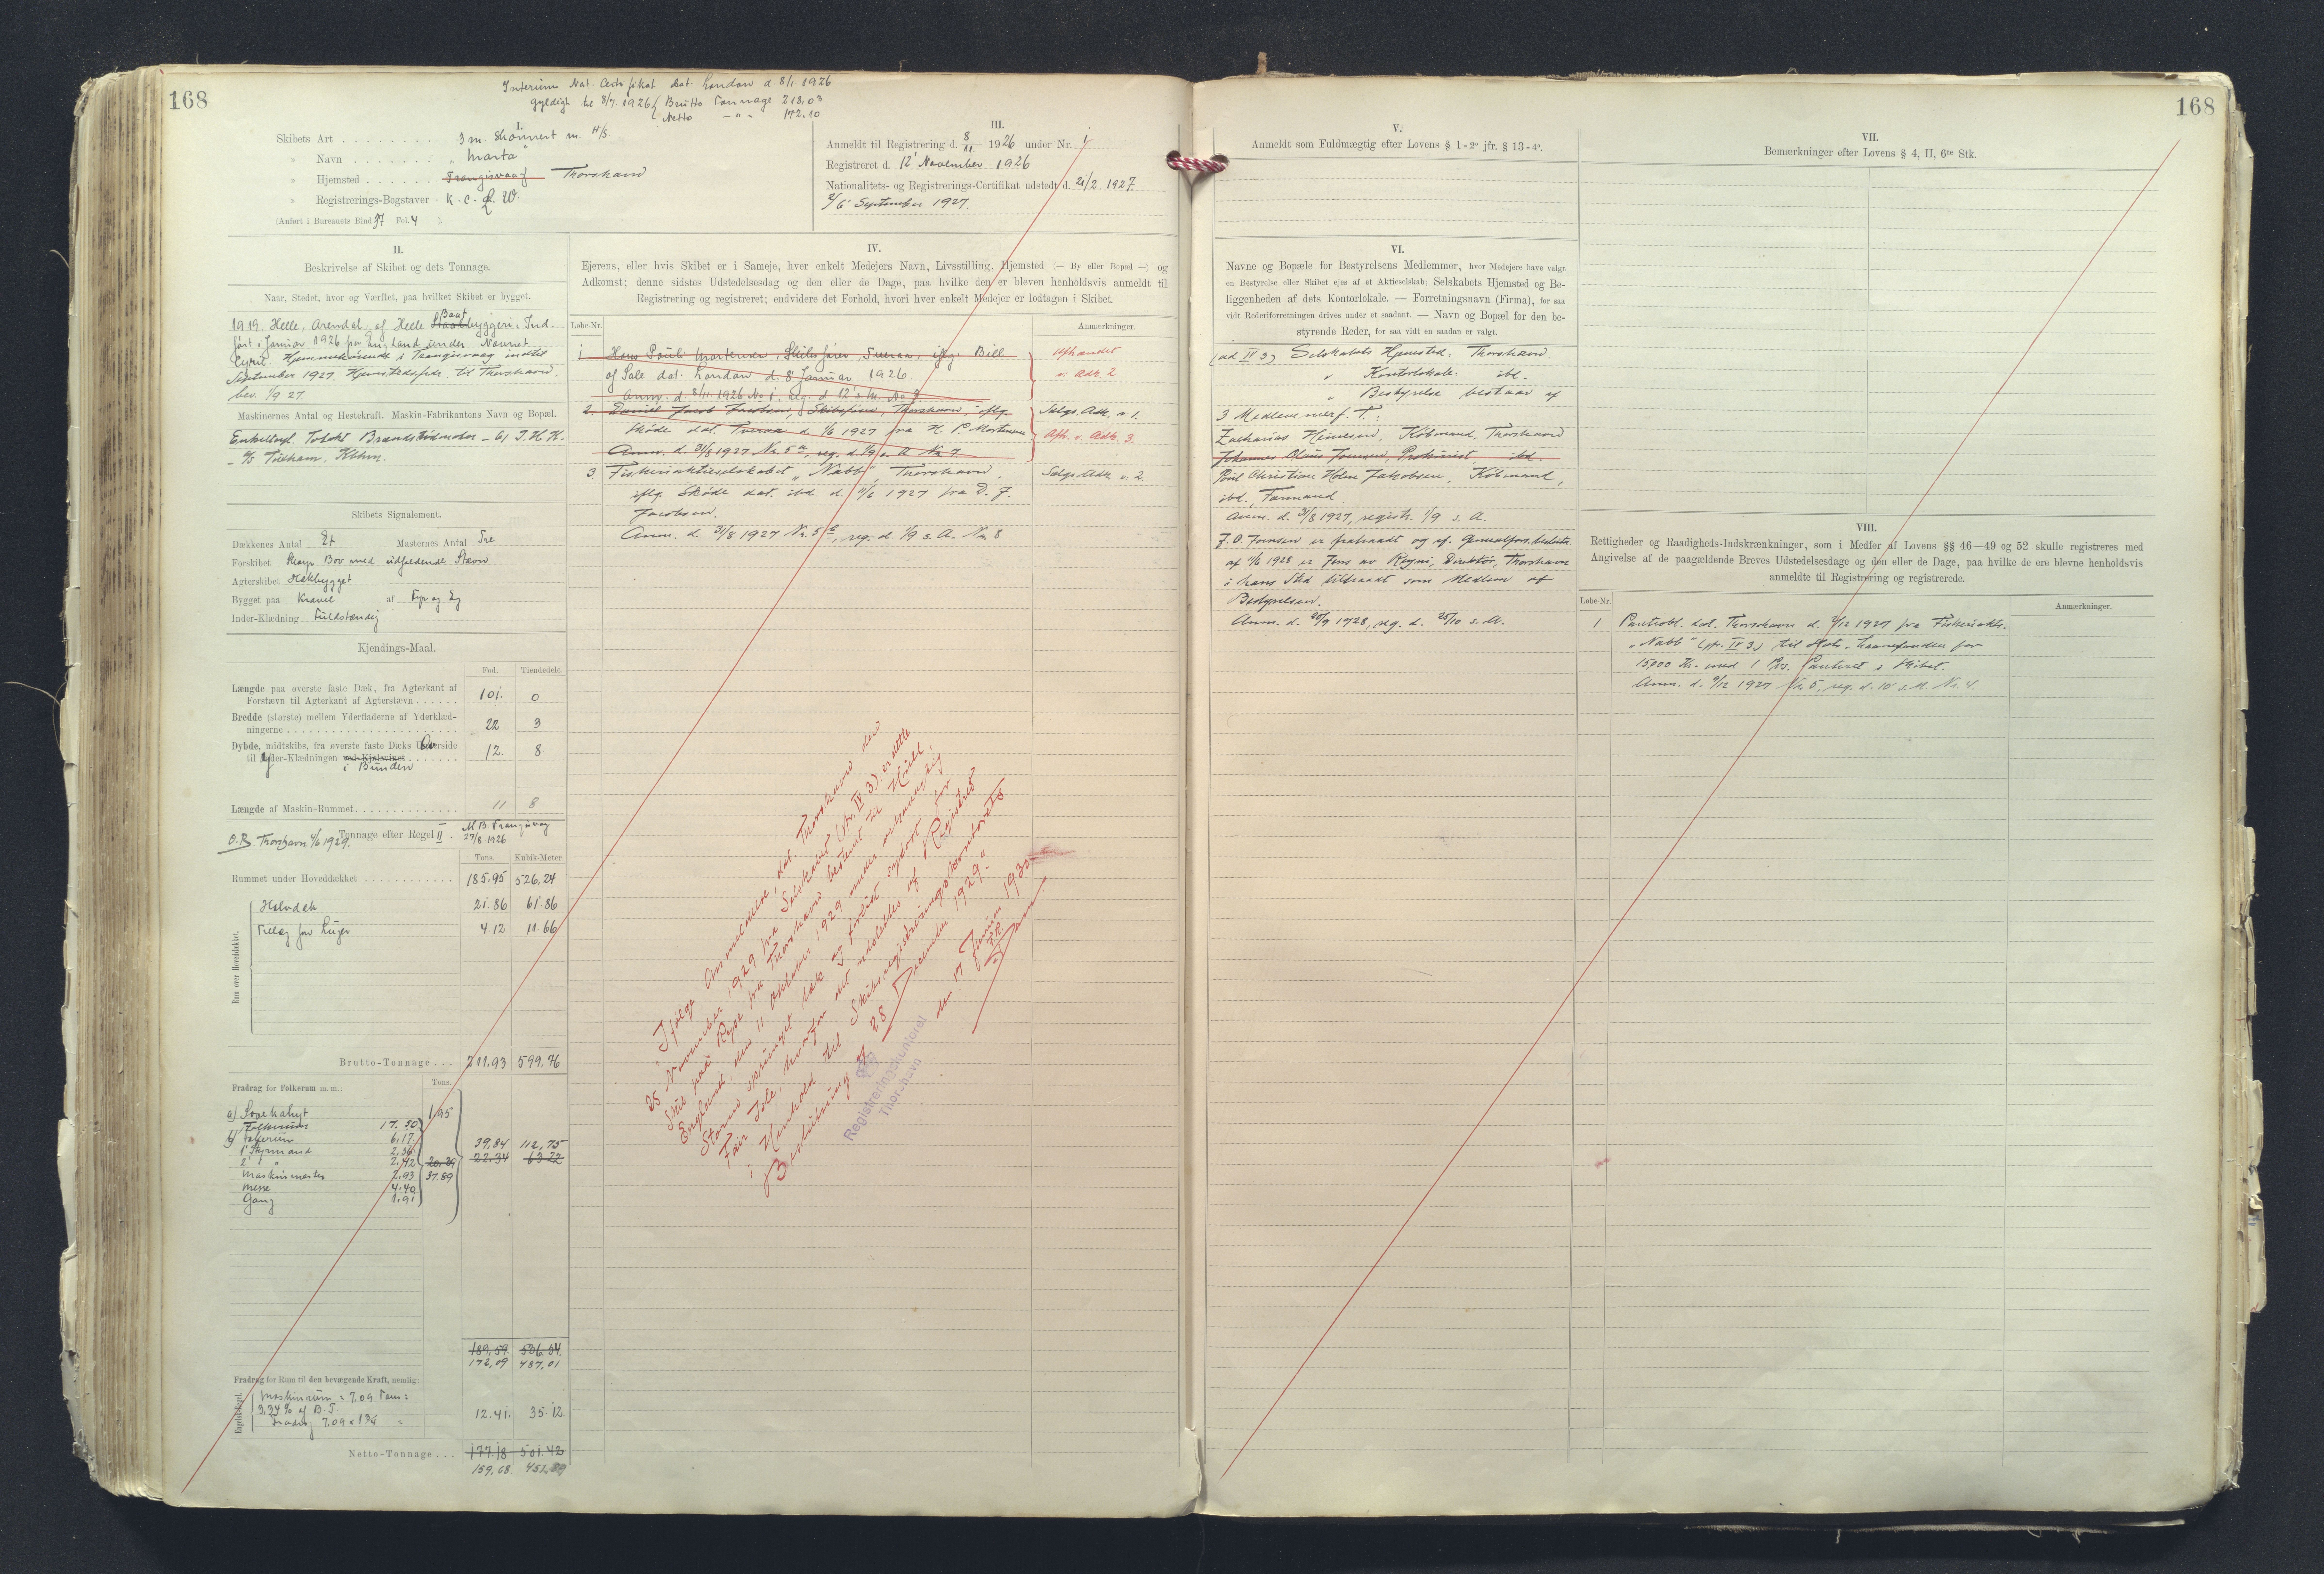 168
Interims Nat. Certifikat dat. London d 8/1 1926
gyldigt til 8/7. 1926 { Brutto Tonnage 218,03
Netto — " — 172.10
I.
Skibets Art . . . . . . . . . 3 m. Skonnert m. H/S.
» Navn . . . . . . . „Marta"
» Hjemsted . . . . . . Trangisvaag Thorshavn
» Registrerings-Bogstaver K. C. L. W.
(Anført i Bureauets Bind 37 Fol. 4 ).
II.
Beskrivelse af Skibet og dets Tonnage.
Naar, Stedet, hvor og Værftet, paa hvilket Skibet er bygget.
1919. Helle, Arendal, af Helle Baat
byggeri. Ind-
ført i Januar 1926 fra England under Navnet
Hjemmehørende i Trangisvaag indtil
September 1927. Hjemstedsforandr. til Thorshavn.
bev. 1/9 27.
Maskinernes Antal og Hestekraft. Maskin-Fabrikantens Navn og Bopæl.
Enkeltvirk. Totakt Brændstofmotor – 61 I. H. K.
– A/S Tuxham, Kbhvn.
Skibets Signalement.
Dækkenes Antal Et Masternes Antal Tre
Forskibet Skarp Bov med udfaldende Stævn
Agterskibet Hækbygget
Bygget paa Kravel af Fyr og Eg
Inder-Klædning Fuldstændig
Kjendings-Maal.
Fod. Tiendedele.
Længde paa øverste faste Dæk, fra Agterkant af
Forstævn til Agterkant af Agterstævn . . . . . . 101. 0
Bredde (største) mellem Yderfladerne af Yderklæd-
ningerne . . . . . . . . . . . . 22 3
Dybde, midtskibs, fra øverste faste Dæks Overside
til Yder-Klædningen ved Kjølsvinet . . . . . . . 12. 8
i Bunden
Længde af Maskin-Rummet . . . . . . . . . . . . . . 11 8
O.B. Thorshavn 4/6 1929. Tonnage efter Regel II . M.B. Trangisvaag
27/8 1926
Tons. Kubik-Meter.
Rummet under Hoveddækket . . . . . . . . . . . . 185.95 526.24
Rum over Hoveddækket.
Halvdæk 21.86 61.86
Tillæg for Luger 4.12 11.66
Brutto-Tonnage . . . 211.93 599.76
Fradrag for Folkerum m. m.: Tons.
a) Sovekahyt 1.95
b) Folkerum 17.50
6.17
1' Styrmand 2.56
2' " " 2.42 20.39 39,84 112,75
Maskinmester 2.93 37.89 22.34 63.22
Messe 4.40
Gang 1.91
189,59. 536.54.
172,09 487,01
Fradrag for Rum til den bevægende Kraft, nemlig:
Maskinrum = 7,09 Tons =
3,34 % af B. T.
Fradrag 7,09 × 1 3/4 = 12.41. 35.12.
Netto-Tonnage . . . 177.18 501.42
159,68. 451,89
III.
Anmeldt til Registrering d. 8/11 1926 under Nr. 1
Registreret d. 12' November 1926
Nationalitets- og Registrerings-Certifikat udstedt d. 21/2. 1927.
6' September 1927.
IV.
Ejerens, eller hvis Skibet er i Sameje, hver enkelt Medejers Navn, Livsstilling, Hjemsted (— By eller Bopæl —) og
Adkomst; denne sidstes Udstedelsesdag og den eller de Dage, paa hvilke den er bleven henholdsvis anmeldt til
Registrering og registreret; endvidere det Forhold, hvori hver enkelt Medejer er lodtagen i Skibet.
Løbe-Nr. Anmærkninger.
1 Hans Pauli Mortensen, Skibsfører, Tveraa, iflg. Bill Afhændet
of Sale dat. London d. 8' Januar 1926. v. Adk. 2
Anm. d. 8/11 1926 No 1, Reg. d. 12' s. M. No 3
2. Daniel Jacob Jacobsen, Skibsfører, Thorshavn iflg. Slgs. Adk. v. 1.
Skøde dat. Tveraa d. 1/6 1927 fra H. P. Mortensen Afh. v. Adk. 3.
Anm. d. 31/8 1927 Nr. 5 a, reg. d. 1/9 s. A. Nr. 7
3. Fiskeriaktieselskabet „Nabb", Thorshavn, Slgs. Adk. v. 2.
iflg. Skøde dat. ibd. d. 11/6 1927 fra D. J.
Jacobsen.
Anm. d. 31/8 1927 Nr. 5 b, reg. d. 1/9 s. A. Nr. 8
„Ifølge Anmeldelse, dat. Thorshavn den
25 November 1929 fra Selskabet (ptr. IV 3), er dette
Skib paa Rejse fra Thorshavn bestemt til Hull,
England, den 11 Oktober 1929 under
Storm sprunget læk og forlist sydost for
Fair Isle, hvorfor det udslettes af Registret
i Henhold til Skibsregistreringskontorets
Bestemmelse af 28 December 1929."
den 17 Januar 1930
Registreringskontoret
Thorshavn
168
V.
Anmeldt som Fuldmægtig efter Lovens § 1 - 2° jfr. § 13 - 4°.
VI.
Navne og Bopæle for Bestyrelsens Medlemmer, hvor Medejere have valgt
en Bestyrelse eller Skibet ejes af et Aktieselskab; Selskabets Hjemsted og Be-
liggenheden af dets Kontorlokale. — Forretningsnavn (Firma), for saa
vidt Rederiforretningen drives under et saadant. — Navn og Bopæl for den be-
styrende Reder, for saa vidt en saadan er valgt.
(ad IV 3) Selskabets Hjemsted: Thorshavn.
„ Kontorlokale: ibd.
„ Bestyrelse bestaar af
3 Medlemmer f. T.:
Zacharias Heinesen, Købmand, Thorshavn
Johannes Olaus Joensen, Prokurist, ibd.
Poul Christian Holm Jakobsen, Købmand,
ibd., Formand.
Anm. d. 31/8 1927, registr. 1/9 s. A.
J. O. Joensen er fratraadt og af Generalfors. besluttet
af 11/6 1928 er Jens av Reyni, Direktør, Thorshavn
i hans Sted tiltraadt som Medlem af
Bestyrelsen.
Anm. d. 20/9 1928, reg. d. 25/10 s. A.
VII.
Bemærkninger efter Lovens § 4, II, 6te Stk.
VIII.
Rettigheder og Raadigheds-Indskrænkninger, som i Medfør af Lovens §§ 46—49 og 52 skulle registreres med
Angivelse af de paagældende Breves Udstedelsesdage og den eller de Dage, paa hvilke de ere blevne henholdsvis
anmeldte til Registrering og registrerede.
Løbe-Nr. Anmærkninger.
1 Pantobl. dat. Thorshavn d. 9/12 1927 fra Fiskeriakts.
„Nabb" (ptr. IV 3) til Laanefonden for
15,000 Kr. med 1 Pr. Panteret i Skibet.
Anm. d. 9/12 1927 Nr. 5, reg. d. 10' s. M. Nr. 4.